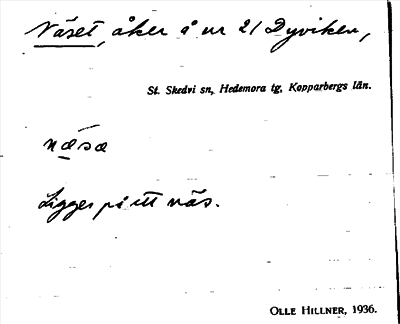 Näset, åker å nr 21 Dyviken,
St. Skedvi sn, Hedemora tg, Kopparbergs län.
næsa
Ligger på ett näs.
OLLE HILLNER, 1936.